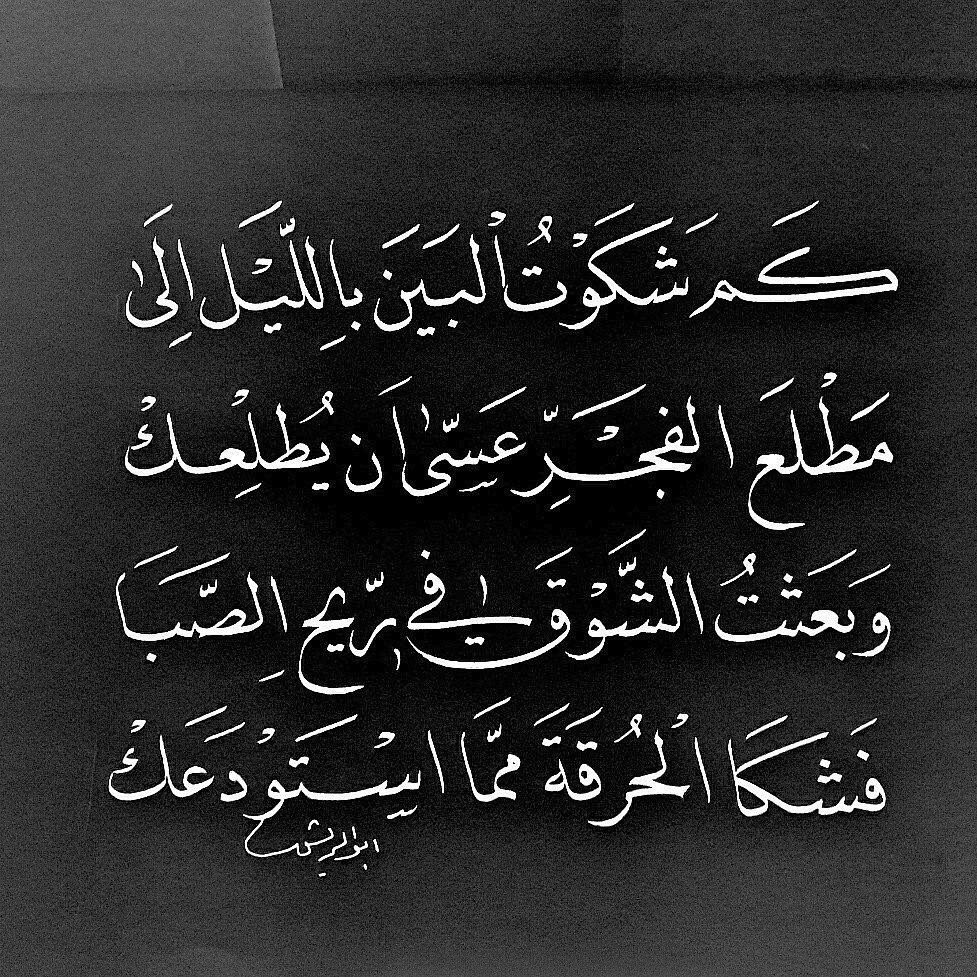 كَم شَكَوْتُ ٱلبَينَ بِاللَّيْلِ اِلَىٰ
مَطْلَعِ الفَجْرِ عَسَىٰ اَن يُطْلِعِكْ
وَبَعَثتُ الشَّوْقَ في رِّيحِ الصَّبَا
فَشكَا الْحُرقَةَ مِمَّا اسْتَوْدَعَكْ
ابو الريش